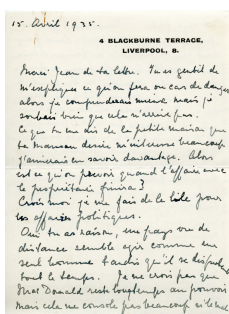 15. Avril 1935.
4 BLACKBURNE TERRACE,
LIVERPOOL, 8.
Merci Jean de ta lettre. Tu es gentil de
m'expliquer ce qu'on fera en cas de danger
alors je comprendrai mieux mais je
souhais bien que cela n'arrive pas.
Ce que tu me dis de la petite maison que
ta maman désire m'intéresse beaucoup
j'aimerais en savoir davantage. Alors
est ce qu'on pourra quand l'affaire avec
le propriétaire finira?
Crois moi je me fais de la bile pour
les affaires politiques.
Oui tu as raison, un pays vu de
distance semble agir comme un
seul homme tandis qu'il se dispute
tout le temps. Je ne crois pas que
MacDonald reste longtemps au pouvoir
mais cela me console pas beaucoup